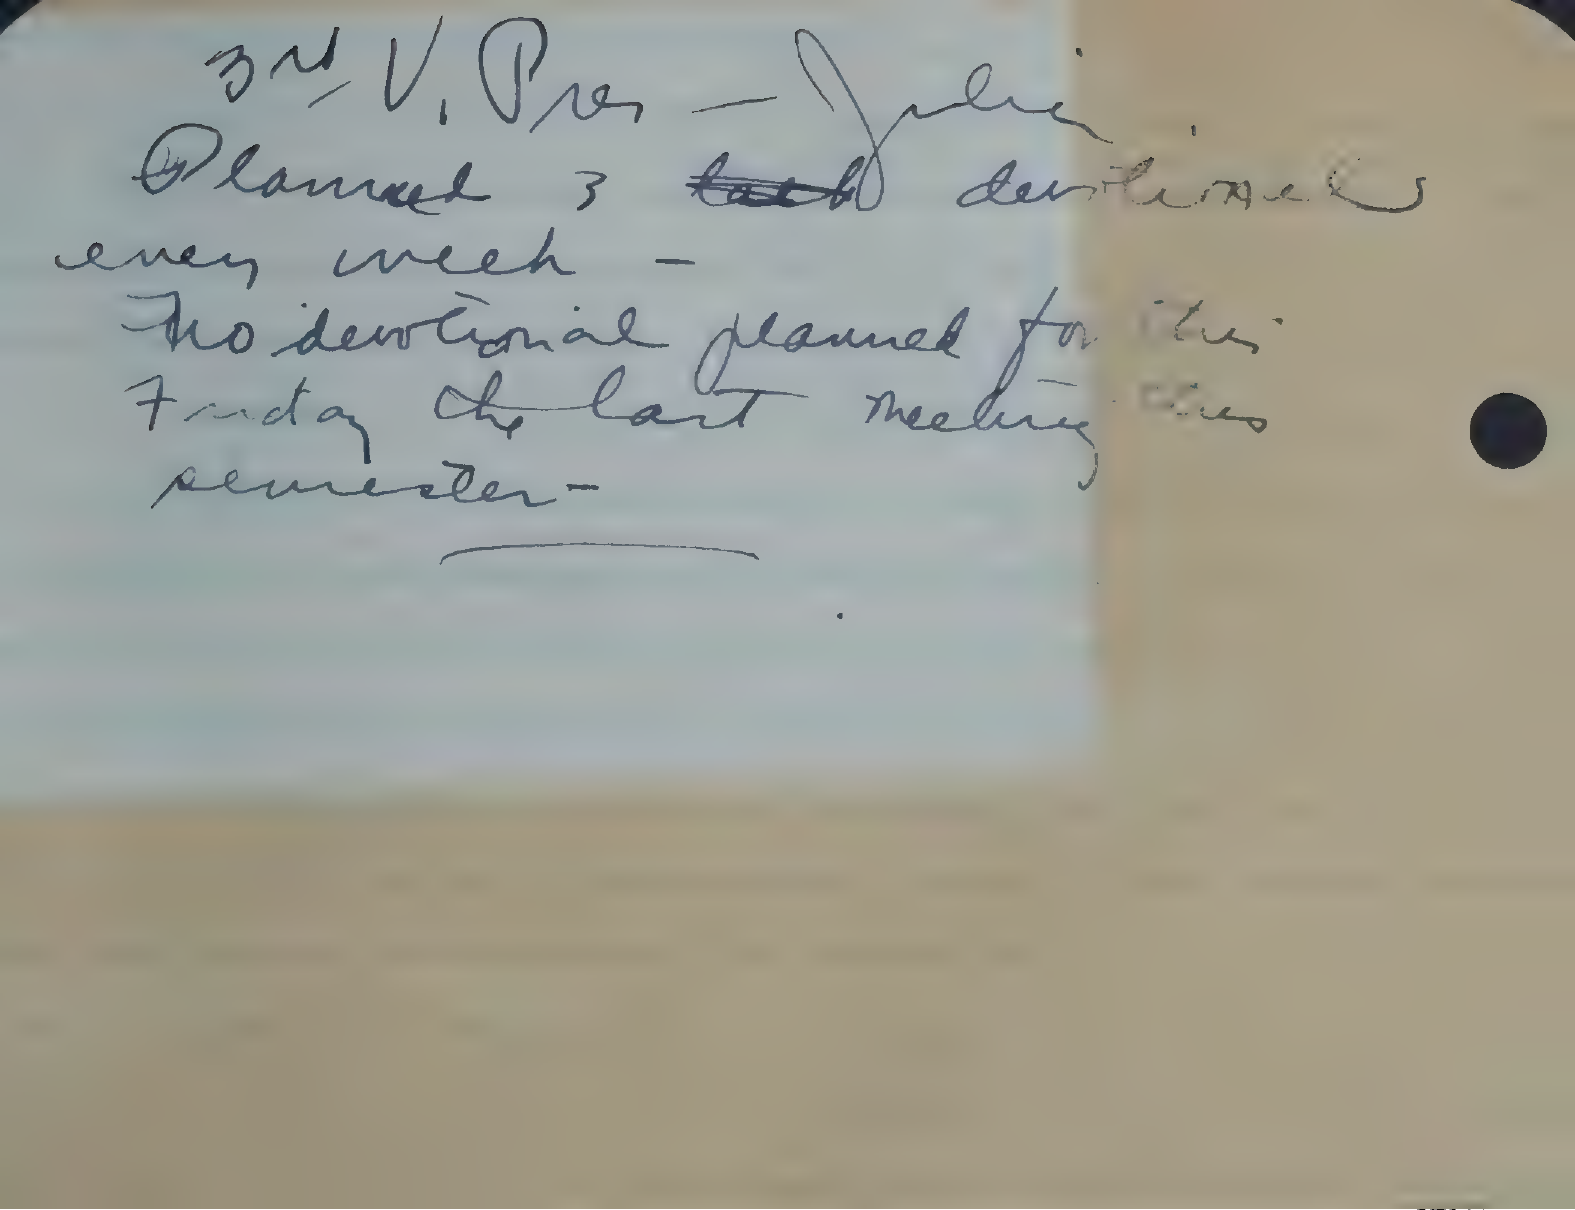 3rd V. Pres — Julia
Planned 3 devotionals
every week -
No devotional planned for this
Friday the last meeting this
semester -